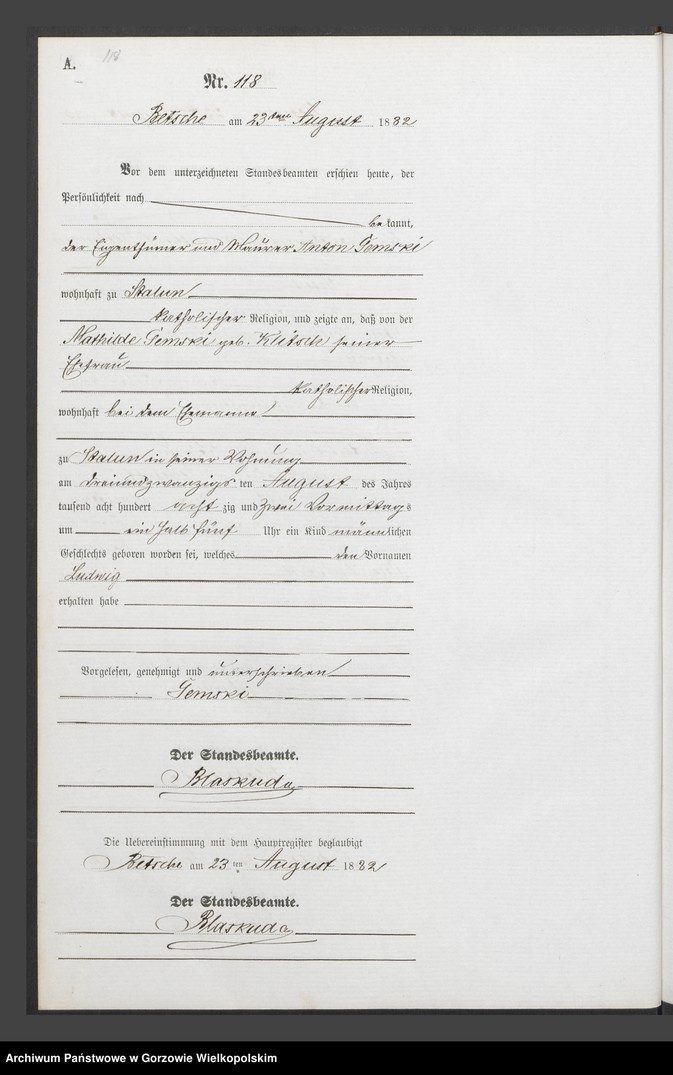 A.
118
Nr. 118
Betsche am 23ten August 1882
Vor dem unterzeichneten Standesbeamten erschien heute, der
Persönlichkeit nach
bekannt,
der Eigenthümer und Maurer Anton Gemski
wohnhaft zu Stalun
katholischer Religion, und zeigte an, daß von der
Mathilde Gemski geb. Klitsch seiner
Ehefrau
katholischer Religion,
wohnhaft bei dem Ehemanne
zu Stalun in seiner Wohnung
am dreiundzwanzigs ten August des Jahres
tausend acht hundert acht zig und zwei Vormittags
um ein halb fünf Uhr ein Kind männlichen
Geschlechts geboren worden sei, welches den Vornamen
Ludwig
erhalten habe
Vorgelesen, genehmigt und unterschrieben
Gemski
Der Standesbeamte.
Blaskuda
Die Uebereinstimmung mit dem Hauptregister beglaubigt
Betsche am 23 ten August 1882
Der Standesbeamte.
Blaskuda
Archiwum Państwowe w Gorzowie Wielkopolskim